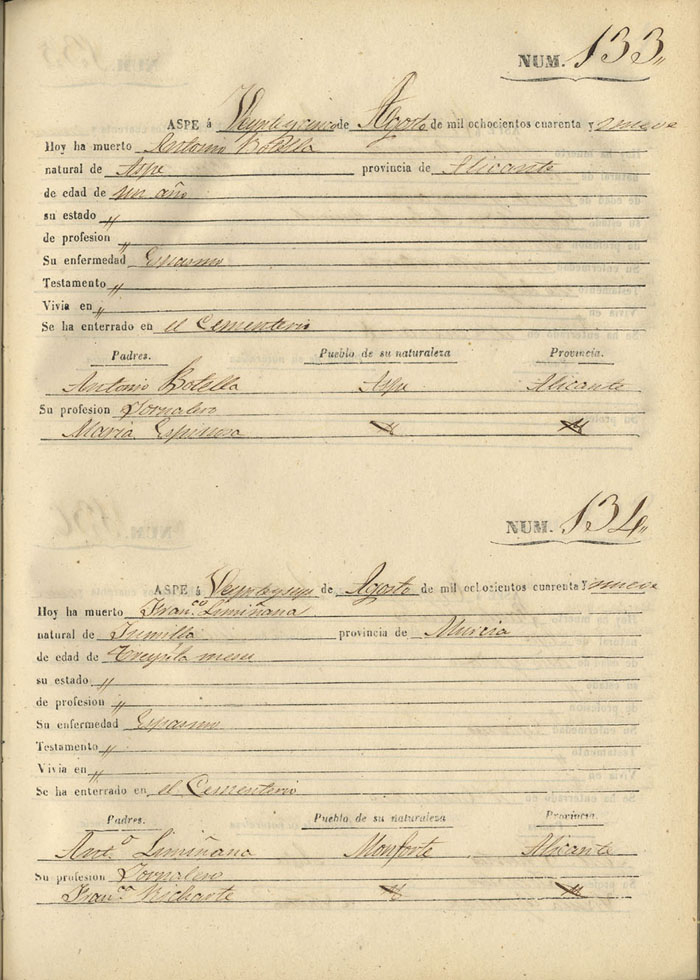 NUM. 133"
ASPE á Veynteycinco de Agosto de mil ochocientos cuarenta y nueve
Hoy ha muerto Antonio Botella
natural de Aspe provincia de Alicante
de edad de un año
su estado "
de profesion "
Su enfermedad Espasmo
Testamento "
Vivia en "
Se ha enterrado en el Cementerio
Padres. Pueblo de su naturaleza Provincia.
Antonio Botella Aspe Alicante
Su profesion Jornalero
Maria Espinosa
NUM. 134"
ASPE á Veynteyseys de Agosto de mil ochozientos cuarenta y nueve
Hoy ha muerto Fran.co Limiñana
natural de Jumilla provincia de Murcia
de edad de Treynta meses
su estado "
de profesion "
Su enfermedad Espasmo
Testamento "
Vivia en "
Se ha enterrado en el Cementerio
Padres. Pueblo de su naturaleza Provincia.
Ant.o Limiñana Monforte Alicante
Su profesion Jornalero
Fran.ca